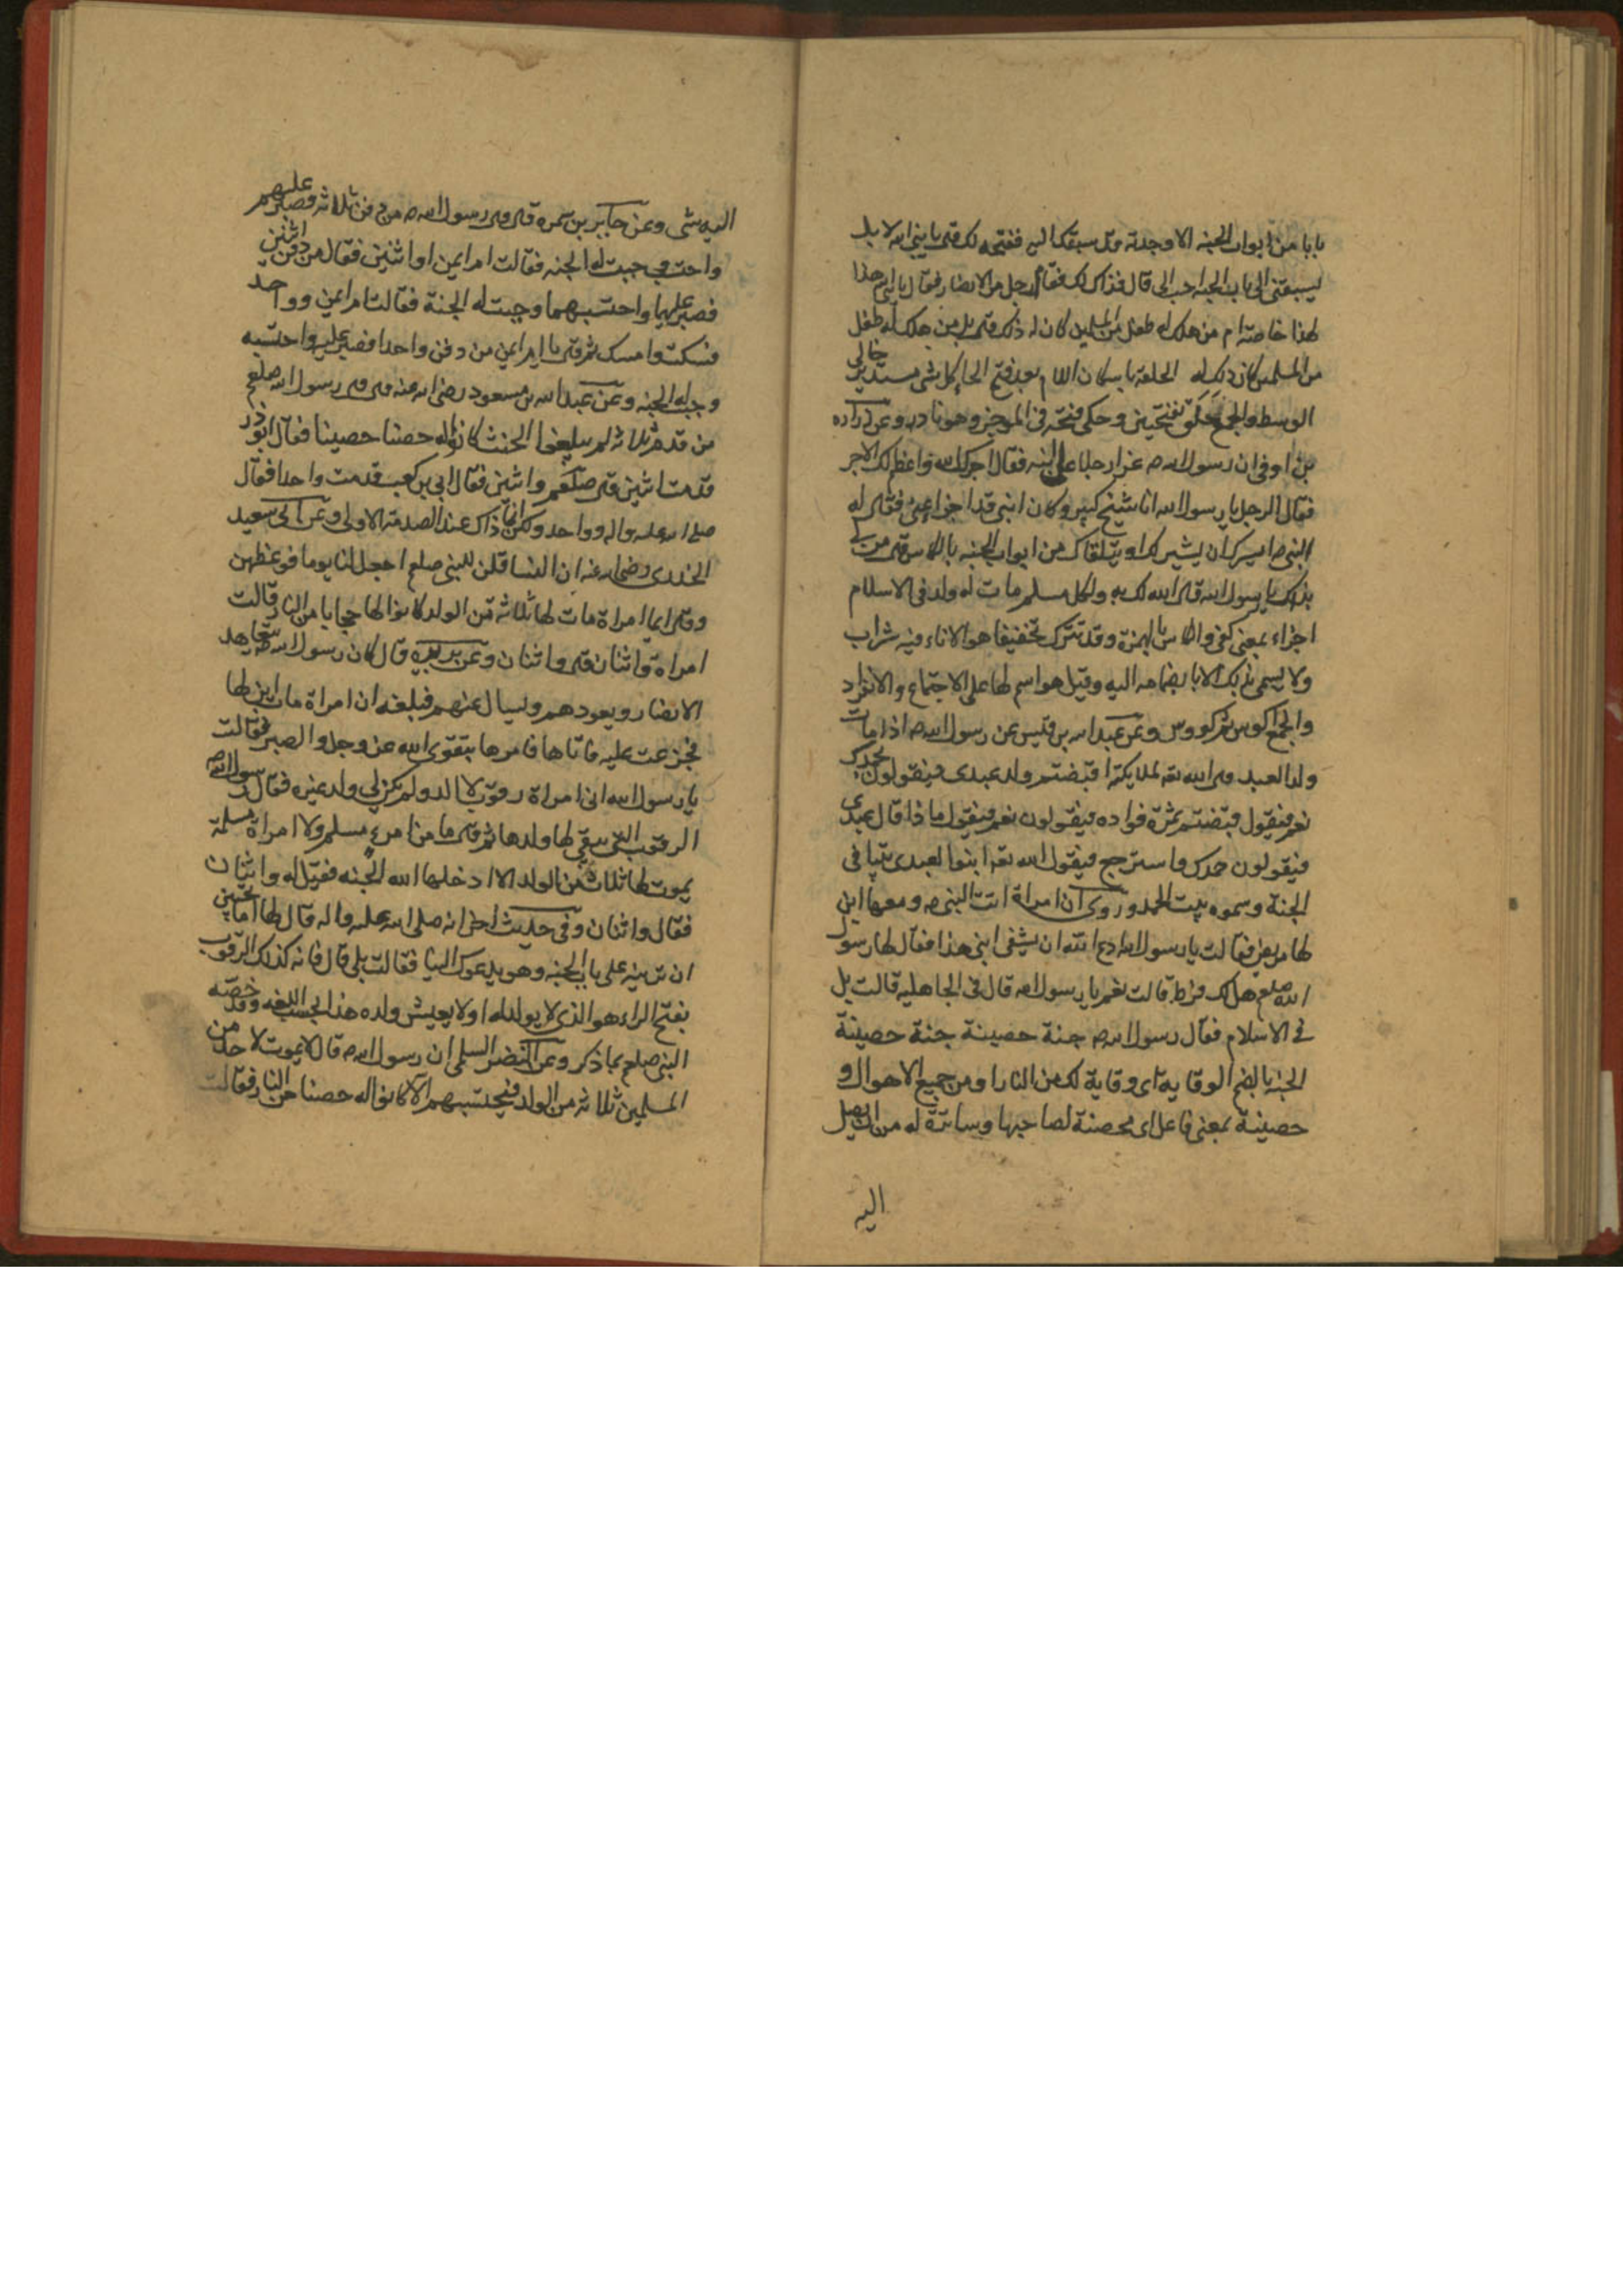 بابا من ابواب الجنه الا وجدته قد سبقك اليه ففتحه لك قال يا نبي الله لا بل
يسبقني الى باب الجنه احب الى قال فذاك لك فقام رجل من الانصار فقال يا نبي الله هذا
لهذا خاصة ام من هلك له طفل من المسلمين كان له ذلك قال بل من هلك له طفل
من المسلمين كان ذلك له الحلقة باسكان اللام بعد فتح الحا كل شى مستدير خالي
الوسط والجمع حلق بفتحتين وحكى فتحه في الموجز وهو نادر وعن زراره
بن اوفى ان رسول الله ص عزا رجلا على ابنه فقال اجرك الله واعظم لك الاجر
فقال الرجل يا رسول الله انا شيخ كبير وكان ابني قد اجزا عني فقال له
النبي ص ايسرك ان يشير لك او يتلقاك من ابواب الجنه بالكاس قال من لي
بذلك يا رسول الله قال الله لك به ولكل مسلم مات له ولد في الاسلام
اجزاء بمعنى كفى والكاس بالهمزة وقد تترك تخفيفا هو الاناء فيه شراب
ولا يسمى بذلك الا بانضمامه اليه وقيل هو اسم لها على الاجتماع والانفراد
والجمع اكوس ثم كووس وعن عبد الله بن قيس عن رسول الله ص اذا مات
ولد العبد قال الله تعه لملايكته اقبضتم ولد عبدى فيقولون
نعم فيقول قبضتم ثمرة فواده فيقولون نعم فيقول ماذا قال عبدى
فيقولون حمدك واسترجع فيقول الله تعه ابنوا لعبدى بيتا في
الجنة وسموه بيت الحمد وروى ان امراة اتت النبي ص ومعها ابن
لها مريض فقالت يا رسول الله ادع الله ان يشفى ابني هذا فقال لها رسول
الله صلعم هل لك فرط قالت نعم يا رسول الله قال في الجاهليه قالت بل
في الاسلام فقال رسول الله ص جنة حصينة جنة حصينة
الجنة بالضم الوقاية اى وقاية لك من النار او من جميع الاهوال و
حصينة بمعنى فاعل اى محصنة لصاحبها وساترة له من ان يصل
اليه
اليه شى وعن جابر بن سمره قال قال رسول الله ص من دفن ثلاثه فصبر عليهم
واحتسب وجبت له الجنه فقالت ام ايمن او اثنين فقال من دفن اثنين
فصبر عليهما واحتسبهما وجبت له الجنة فقالت ام ايمن وواحد
فسكت وامسك ثم قال يا ام ايمن من دفن واحدا فصبر عليه واحتسبه
وجبت له الجنه وعن عبد الله بن مسعود رضى الله عنه قال قال رسول الله صلعم
من قدم ثلاثه لم يبلغوا الحنث كانوا له حصنا حصينا فقال ابو ذر
قدمت اثنين قال واثنين فقال ابي بن كعب قدمت واحدا فقال
صلى الله عليه واله وواحد ولكن انما ذاك عند الصدمة الاولى وعن ابي سعيد
الخدرى رضى الله عنه ان النسا قلن للنبي صلعم اجعل لنا يوما فوعظهن
وقال ايما امراة مات لها ثلاثه من الولد كانوا لها حجابا من النار قالت
امراة واثنان قال واثنان وعن بريده قال كان رسول الله ص يتعاهد
الانصار ويعودهم ويسال عنهم فبلغه ان امراة مات ابن لها
فجزعت عليه فاتاها فامرها بتقوى الله عز وجل والصبر فقالت
يا رسول الله اني امراة رقوب لا الد ولم يكن لي ولد غيره فقال رسول الله ص
الرقوب التي يبقى لها ولدها ثم قال ما من امرء مسلم ولا امراة مسلمة
يموت لها ثلاثة من الولد الا ادخلها الله الجنه فقيل له واثنان
فقال واثنان وفي حديث اخر انه صلى الله عليه واله قال لها اما تحبين
ان ترينه على باب الجنه وهو يدعوك الينا فقالت بلى قال فانه كذلك الرقوب
بفتح الراء هو الذي لا يولد له او لا يعيش ولده هذا بحسب اللغه وقد خصه
النبي صلعم بما ذكر وعن النضر السلمى ان رسول الله ص قال لا يموت لاحد من
المسلمين ثلاثه من الولد فيحتسبهم الا كانوا له حصنا من النار فقالت